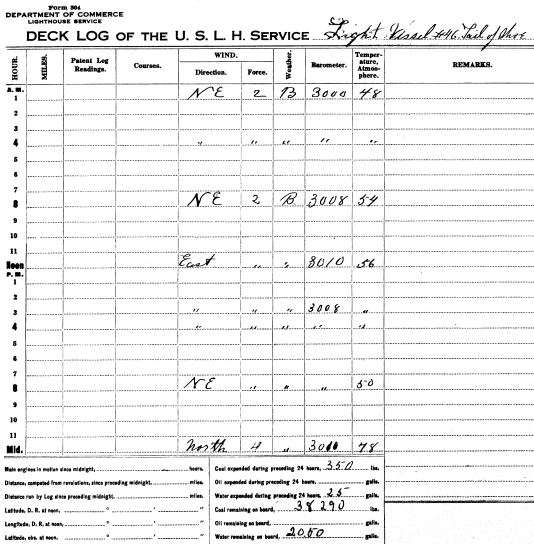 Form 304
DEPARTMENT OF COMMERCE
LIGHTHOUSE SERVICE
DECK LOG OF THE U. S. L. H. SERVICE Light Vessel #46 Tail of Shoe
HOUR. MILES. Patent Log Readings. Courses. WIND. Direction. Force. Weather. Barometer. Temperature, Atmosphere. REMARKS.
A. M.
1 NE 2 B 3000 48
2
3
4 " " " " "
5
6
7
8 NE 2 B 3008 54
9
10
11
Noon East " " 3010 56
P. M.
1
2
3 " " " 3008 "
4 " " " " "
5
6
7
8 NE " " " 50
9
10
11
Mid. North 4 " 3010 48
Main engines in motion since midnight, hours. Coal expended during preceding 24 hours, 350 lbs.
Distance, computed from revolutions, since preceding midnight, miles. Oil expended during preceding 24 hours, galls.
Distance run by Log since preceding midnight, miles. Water expended during preceding 24 hours, 25 galls.
Latitude, D. R. at noon, ° ' " Coal remaining on board, 38290 lbs.
Longitude, D. R. at noon, ° ' " Oil remaining on board, galls.
Latitude, obs. at noon, ° ' " Water remaining on board, 2050 galls.